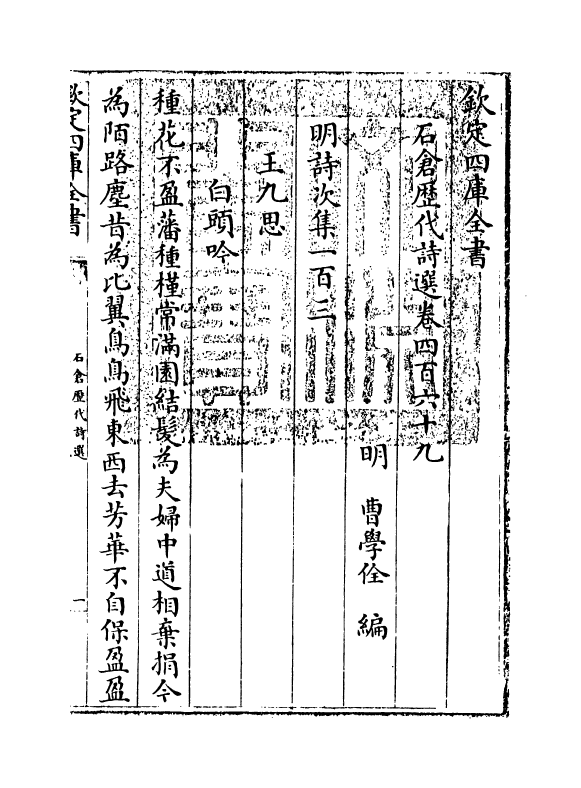 欽定四庫全書
石倉歷代詩選卷四百六十九
明　曹學佺　編
明詩次集一百三
王九思
白頭吟
種花不盈藩種槿常滿園結髮為夫婦中道相棄捐今
為陌路塵昔為比翼鳥鳥飛東西去芳華不自保盈盈
欽定四庫全書
石倉歷代詩選
一